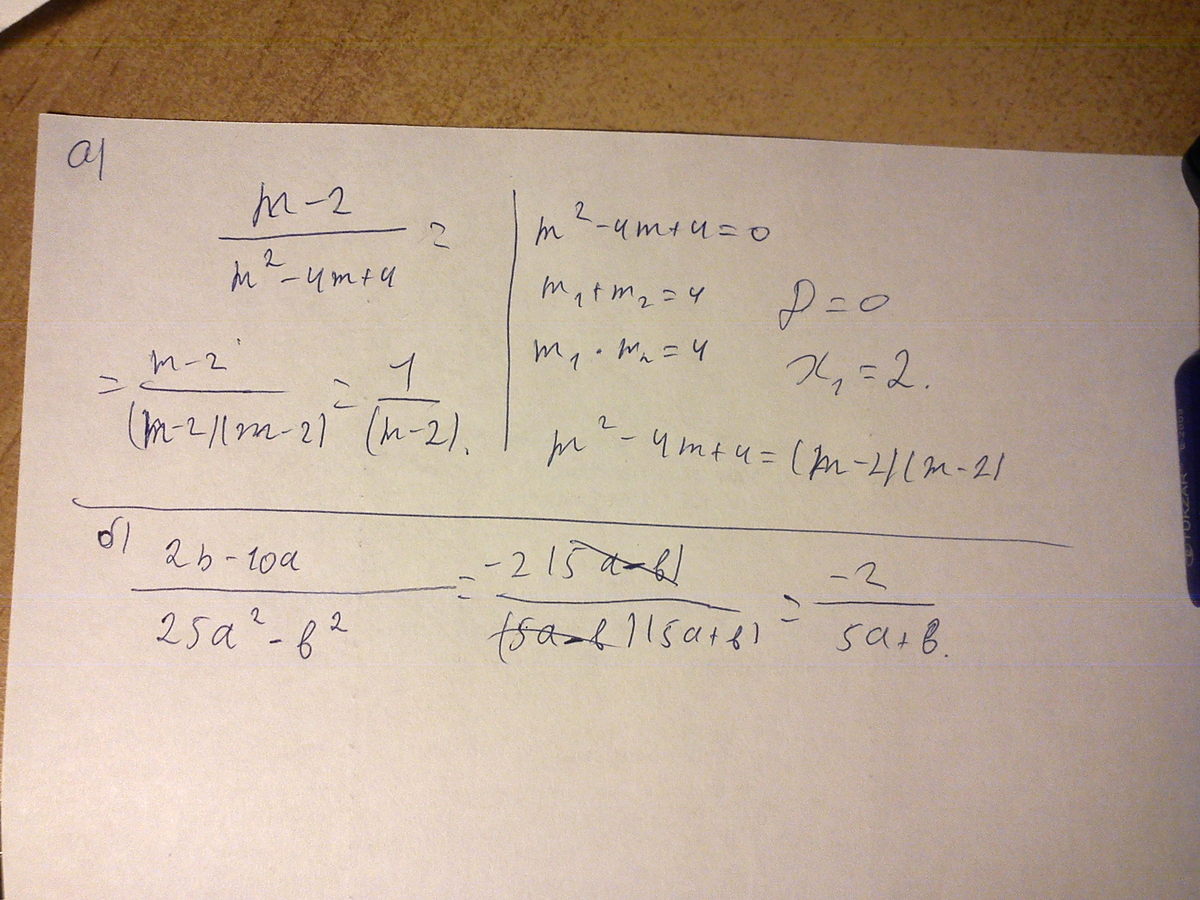 а)
m-2 / m²-4m+4 =
= m-2 / (m-2)(m-2) = 1 / (m-2).
m²-4m+4=0
m₁+m₂=4
m₁·m₂=4
D=0
x₁=2.
m²-4m+4=(m-2)(m-2)
б)
2b-10a / 25a²-b² = -2(5a-b) / (5a-b)(5a+b) = -2 / 5a+b.